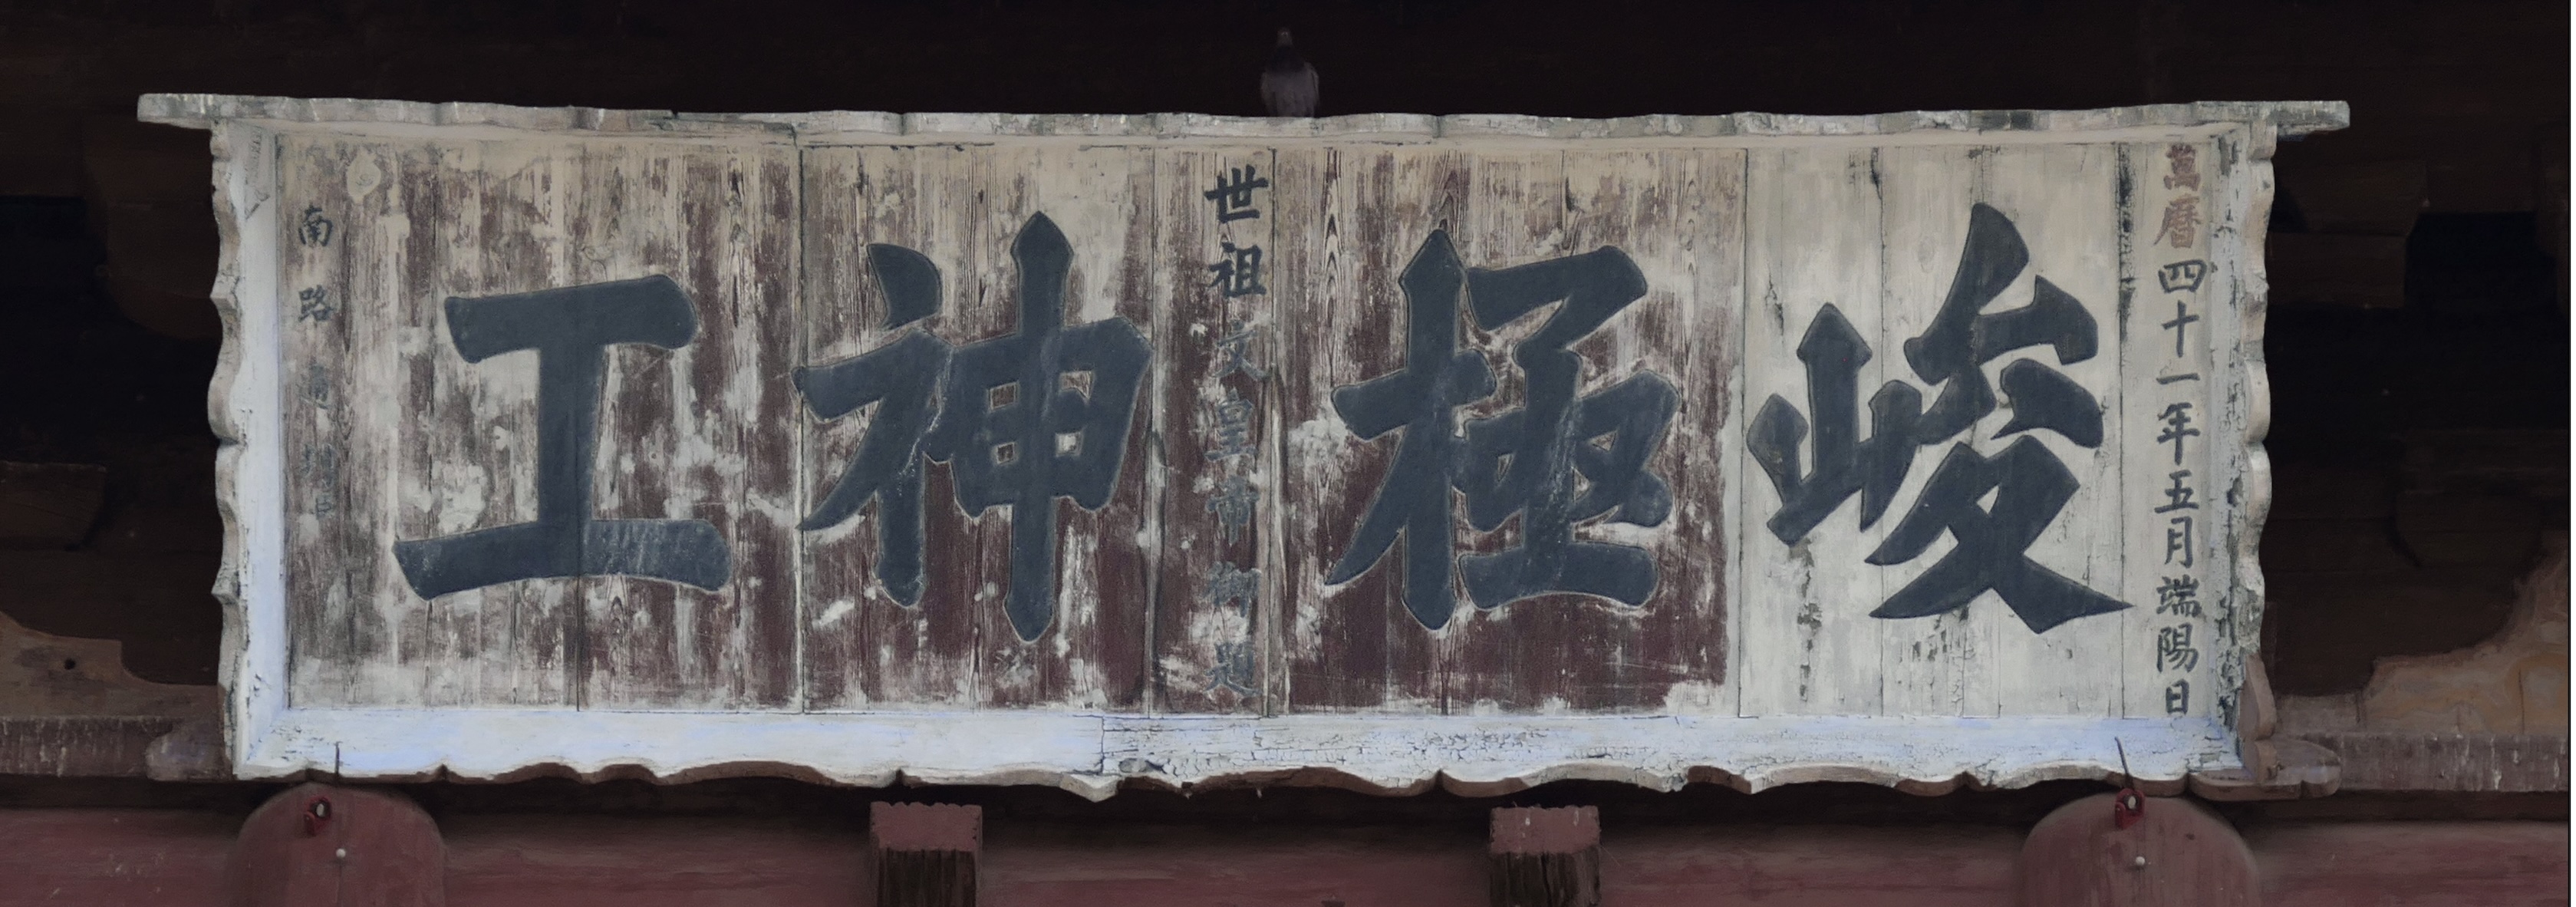 萬曆四十一年五月端陽日
峻極神工
世祖文皇帝御題
南路